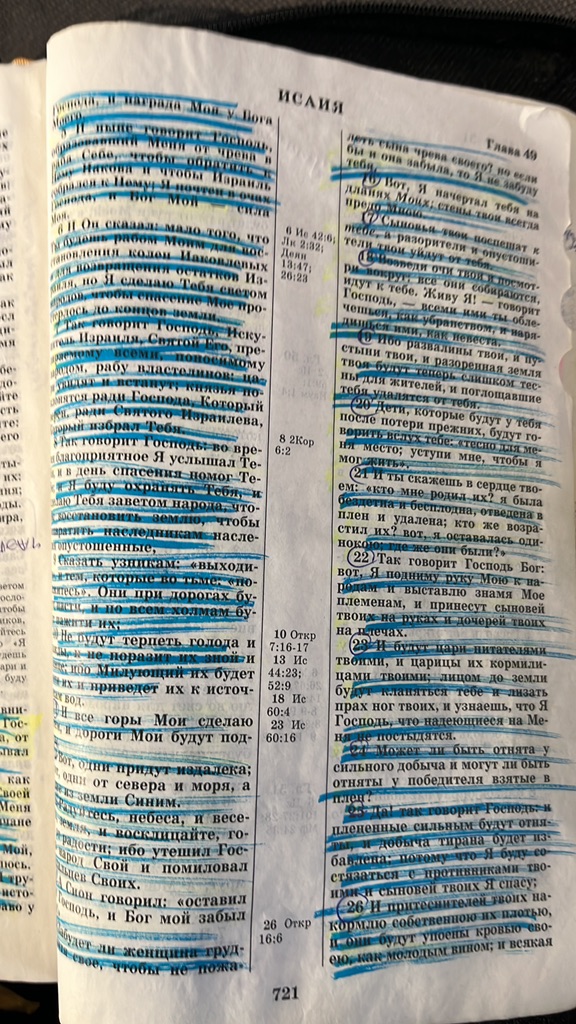 ИСАИЯ
Глава 49
Господа, и награда Моя у Бога
Моего.
И ныне говорит Господь,
образовавший Меня от чрева в
раба Себе, чтобы обратить к
Нему Иакова и чтобы Израиль
собрался к Нему; Я почтен в очах
Господа, и Бог Мой — сила
Моя.
6 И Он сказал: мало того, что
Ты будешь рабом Моим для вос-
становления колен Иаковлевых
и для возвращения остатков Из-
раиля, но Я сделаю Тебя светом
народов, чтобы спасение Мое про-
стерлось до концов земли.
7 Так говорит Господь, Иску-
питель Израиля, Святый Его, пре-
зираемому всеми, поносимому
народом, рабу властелинов: ца-
ри увидят и встанут; князья по-
клонятся ради Господа, Который
верен, ради Святого Израилева,
Который избрал Тебя.
8 Так говорит Господь: во вре-
мя благоприятное Я услышал Те-
бя и в день спасения помог Те-
бе; и Я буду охранять Тебя, и
сделаю Тебя заветом народа, что-
бы восстановить землю, чтобы
возвратить наследникам насле-
дия опустошенные,
9 сказать узникам: «выходи-
те», и тем, которые во тьме: «по-
кажитесь». Они при дорогах бу-
дут пасти, и по всем холмам бу-
дут пажити их;
10 Не будут терпеть голода и
жажды, и не поразит их зной и
солнце; ибо Милующий их будет
вести их и приведет их к источ-
никам вод.
11 И все горы Мои сделаю
путем, и дороги Мои будут под-
няты.
12 Вот, одни придут издалека;
и вот, одни от севера и моря, а
другие из земли Синим.
13 Радуйтесь, небеса, и весе-
лись, земля, и восклицайте, го-
ры, от радости; ибо утешил Гос-
подь народ Свой и помиловал
страдальцев Своих.
14 А Сион говорил: «оставил
меня Господь, и Бог мой забыл
меня!»
15 Забудет ли женщина груд-
ное дитя свое, чтобы не пожа-
6 Ис 42:6;
Лк 2:32;
Деян
13:47;
26:23
8 2Кор
6:2
10 Откр
7:16-17
13 Ис
44:23;
52:9
18 Ис
60:4
23 Ис
60:16
26 Откр
16:6
леть сына чрева своего? но если
бы и она забыла, то Я не забуду
тебя.
16 Вот, Я начертал тебя на
дланях Моих; стены твои всегда
предо Мною.
17 Сыновья твои поспешат к
тебе, а разорители и опустоши-
тели твои уйдут от тебя.
18 Возведи очи твои и посмот-
ри вокруг: все они собираются,
идут к тебе. Живу Я! — говорит
Господь, — всеми ими ты обле-
чешься, как убранством, и наря-
дишься ими, как невеста.
19 Ибо развалины твои, и пу-
стыни твои, и разоренная земля
твоя будут теперь слишком тес-
ны для жителей, и поглощавшие
тебя удалятся от тебя.
20 Дети, которые будут у тебя
после потери прежних, будут го-
ворить вслух тебе: «тесно для ме-
ня место; уступи мне, чтобы я
мог жить».
21 И ты скажешь в сердце тво-
ем: «кто мне родил их? я была
бездетна и бесплодна, отведена в
плен и удалена; кто же возра-
стил их? вот, я оставалась оди-
нокою; где же они были?»
22 Так говорит Господь Бог:
вот, Я подниму руку Мою к на-
родам, и выставлю знамя Мое
племенам, и принесут сыновей
твоих на руках и дочерей твоих
на плечах.
23 И будут цари питателями
твоими, и царицы их кормили-
цами твоими; лицом до земли
будут кланяться тебе и лизать
прах ног твоих, и узнаешь, что Я
Господь, что надеющиеся на Ме-
ня не постыдятся.
24 Может ли быть отнята у
сильного добыча и могут ли быть
отняты у победителя взятые в
плен?
25 Да! так говорит Господь: и
плененные сильным будут отня-
ты, и добыча тирана будет из-
бавлена; потому что Я буду со-
стязаться с противниками тво-
ими и сыновей твоих Я спасу;
26 И притеснителей твоих на-
кормлю собственною их плотью,
и они будут упоены кровью сво-
ею, как молодым вином; и всякая
721